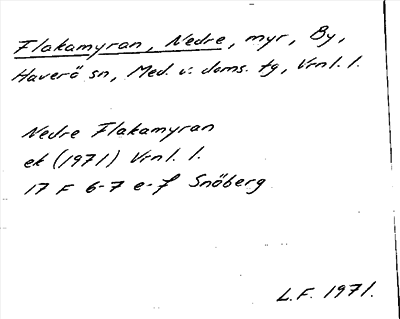 Flakamyran, Nedre, myr, By,
Haverö sn, Med. v. doms. tg, Vrnl. l.
Nedre Flakamyran
ek (1971) Vrnl. l.
17 F 6-7 e-f Snöberg
L.F. 1971.